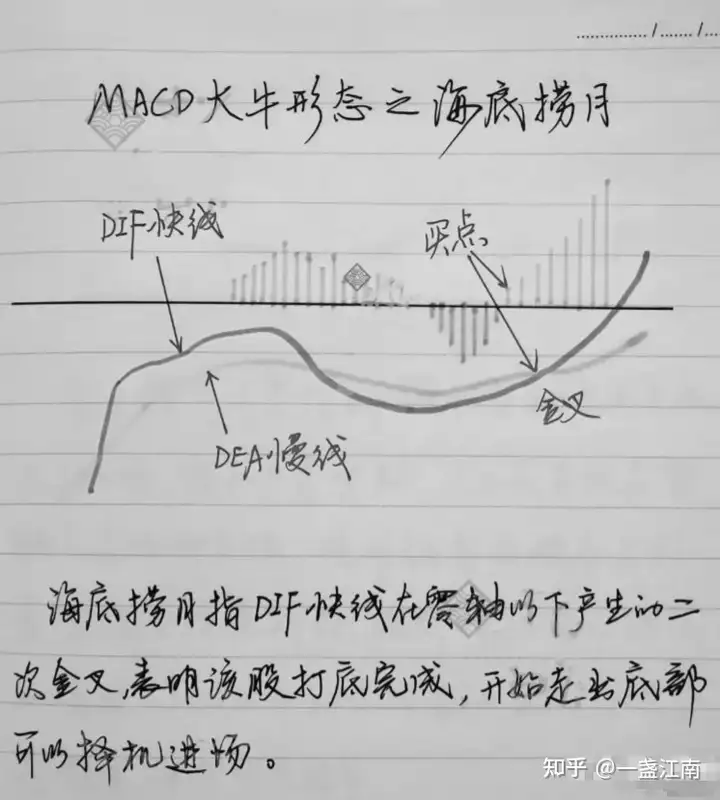 MACD大牛形态之海底捞月
DIF快线
买点
金叉
DEA慢线
海底捞月指DIF快线在零轴以下产生的二
次金叉,表明该股打底完成,开始走出底部
可以择机进场。
知乎 @一盏江南